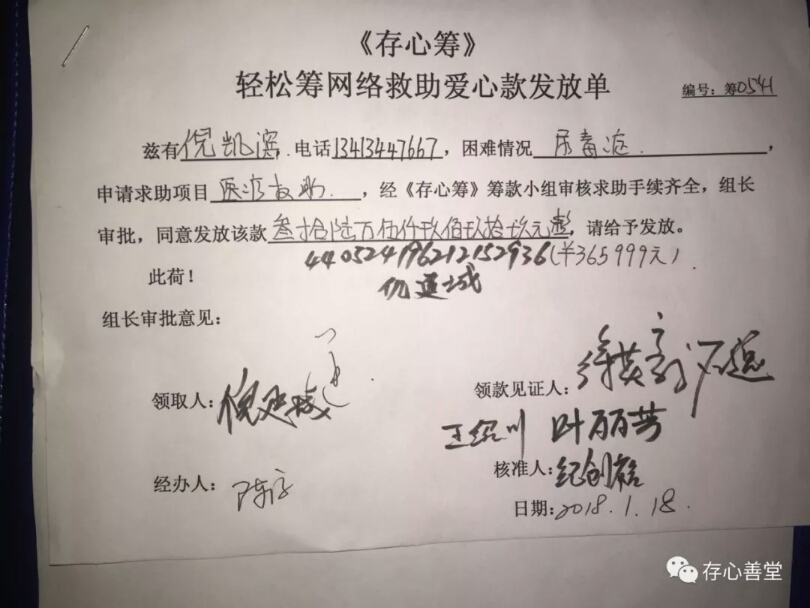 《存心筹》
轻松筹网络救助爱心款发放单
编号：筹0541
兹有 倪凯滨，电话13413447667，困难情况 尿毒症 ，
申请求助项目 医疗救助 ，经《存心筹》筹款小组审核求助手续齐全，组长
审批，同意发放该款 叁拾陆万伍仟玖佰玖拾玖元整，请给予发放。
440524196212152936（￥365999元）
此荷！
组长审批意见：
领取人：
领款见证人：
王绍川 叶丽芳
经办人：
核准人：纪创裕
日期：2018.1.18.
存心善堂